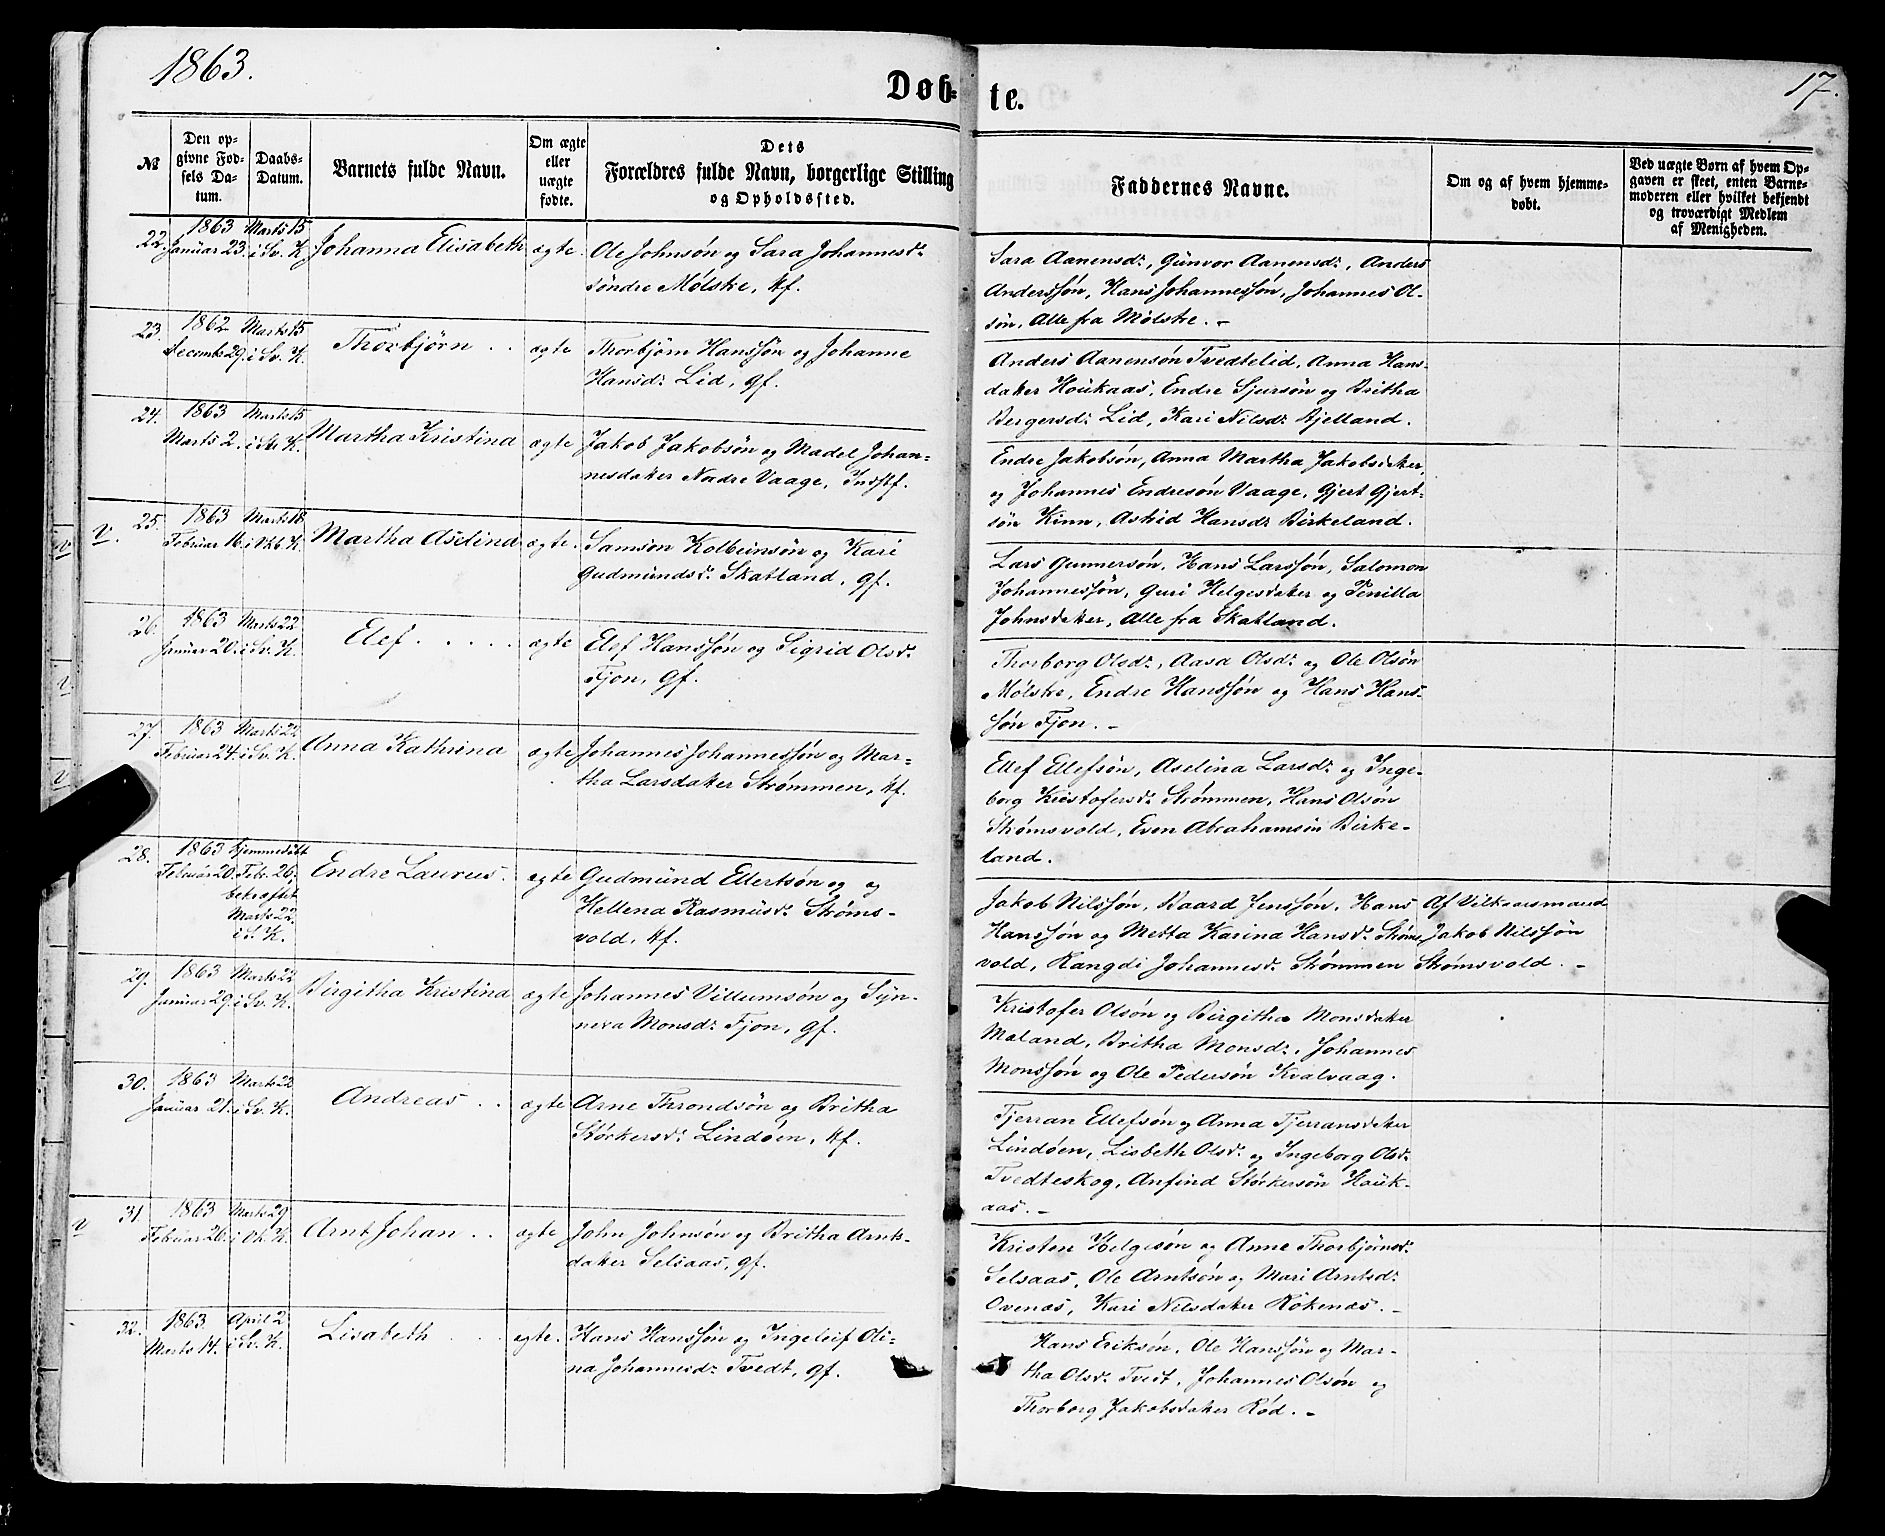 1863.
Døb-te.
17.
№
Den opgivne Fødsels Datum.
Daabs-Datum.
Barnets fulde Navn.
Om ægte eller uægte fødte.
Dets Forældres fulde Navn, borgerlige Stilling og Opholdssted.
Faddernes Navne.
Om og af hvem hjemmedøbt.
Ved uægte Børn af hvem Opgaven er skeet, enten Barnemoderen eller hvilket bekjendt og troværdigt Medlem af Menigheden.
22. 1863 Januar 23. Marts 15 i Sv. K. Johanna Elisabeth ægte. Ole Johnsøn og Sara Johannesdr
søndre Mølstre, kf.
Sara Aanensdr, Gunvor Aanensdr, Anders
Anderssøn, Hans Johannessøn, Johannes Ol-
søn, Alle fra Mølstre. -
23. 1862 Decembr 29. Marts 15 i Sv. K. Thorbjørn . . ægte Thorbjørn Hanssøn og Johanne
Hansdr Lid, gf.
Anders Aanensøn Tvedtelid, Anna Hans-
datter Houkaas, Endre Sjursøn og Britha
Bergersdr Lid, Kari Nilsdr Bjelland.
24. 1863 Marts 2. Marts 15 i Sv. K. Martha Kristina ægte Jakob Jakobsøn og Madel Johan-
nesdatter Nedre Vaage, Indstf.
Endre Jakobsøn, Anna Martha Jakobsdatter,
og Johannes Endresøn Vaage, Gjert Gjert-
søn Kinn, Astrid Hansdr Birkeland.
v. 25. 1863 Februar 16. Marts 18 i Vkb. K. Martha Aselina ægte. Samson Kolbeinsøn og Kari
Gudmundsdr Skatland, gf.
Lars Gunnersøn, Hans Larssøn, Salomon
Johannessøn, Guri Helgesdatter og Pernilla
Johnsdatter, Alle fra Skatland.
26. 1863 Januar 20. Marts 22 i Sv. K. Elef . . . . . ægte Elef Hanssøn og Sigrid Olsdr
Fjon, Gf.
Thorborg Olsdr, Aasa Olsdr og Ole Olsøn
Mølstre, Endre Hanssøn og Hans Hans-
søn Fjon. -
27. 1863 Februar 24. Marts 22 i Sv. K. Anna Kathrina ægte Johannes Johannessøn og Mar-
tha Larsdatter Strømmen, kf.
Ellef Ellefsøn, Aselina Larsdr og Inge-
borg Kristofersdr Strømmen, Hans Olsøn
Strømsvold, Even Abrahamsøn Birke-
land.
28. 1863 Februar 20. Hjemmedøbt Febr. 26, bekræftet Marts 22 i S. K. Endre Laurus. ægte Gudmund Ellertsøn og og
Hellena Rasmusdr Strøms-
vold, kf.
Jakob Nilssøn, Baard Jenssøn, Hans
Hanssøn og Metta Karina Hansdr Strøms
vold, Rangdi Johannesdr Strømmen
Af Vilkaarsmand
Jakob Nilssøn
Strømsvold. -
29. 1863 Januar 29. Marts 22 i Sv. K. Birgitha Kristina ægte Johannes Villumsøn og Syn-
neva Monsdr Fjon, gf.
Kristofer Olsøn og Birgitha Monsdatter
Meland, Britha Monsdr, Johannes
Monssøn og Ole Pedersøn Kvalvaag.
30. 1863 Januar 21. Marts 22 i Sv. K. Andreas . . ægte Arne Throndsøn og Britha
Størkersdr Lindøen, kf.
Tjerran Ellefsøn og Anna Tjerransdatter
Lindøen, Lisbeth Olsdr og Ingeborg Olsdr
Tvedteskog, Anfind Størkersøn Houk-
aas. -
v 31. 1863 Februar 26. Marts 29 i Øl. K. Arnt Johan . . ægte John Johnsøn og Britha Arnts-
datter Selsaas, gf.
Kristen Helgesøn og Anne Thorbjørnsdr
Selsaas, Ole Arntsøn og Mari Arntsdr
Ovenæs, Kari Nilsdatter Røkenæs. -
32. 1863 Marts 14. April 2 i Sv. K. Lisabeth . . . ægte. Hans Hanssøn og Ingeleif Oli-
na Johannesdr Tvedt, gf.
Hans Eriksøn, Ole Hanssøn og Mar-
tha Olsdr Tvedt, Johannes Olsøn og
Thorborg Jakobsdatter Rød. -